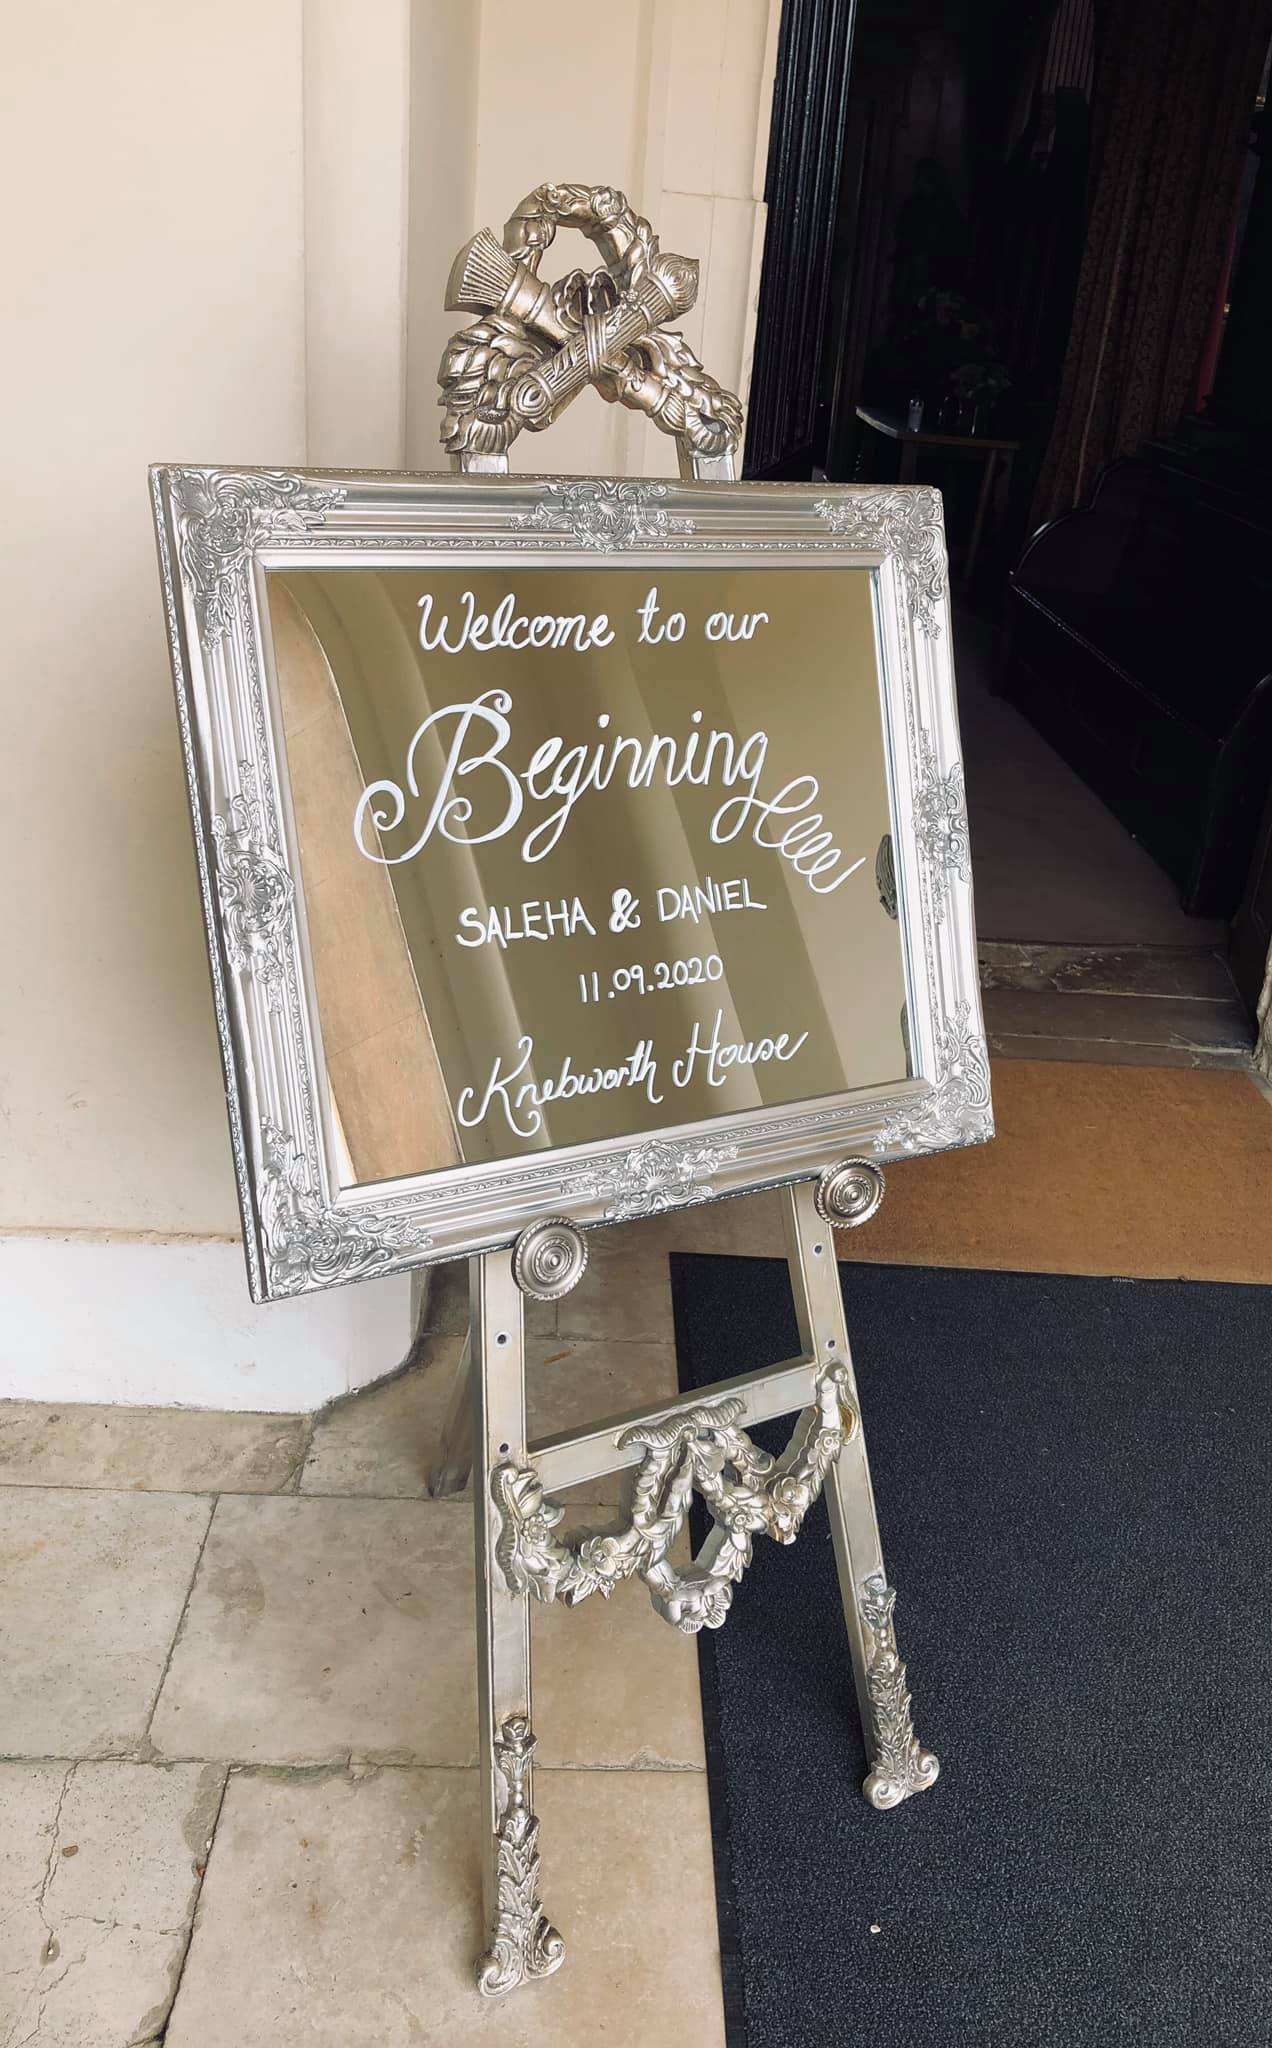 Welcome to our
Beginning
SALEHA & DANIEL
11.09.2020
Knebworth House